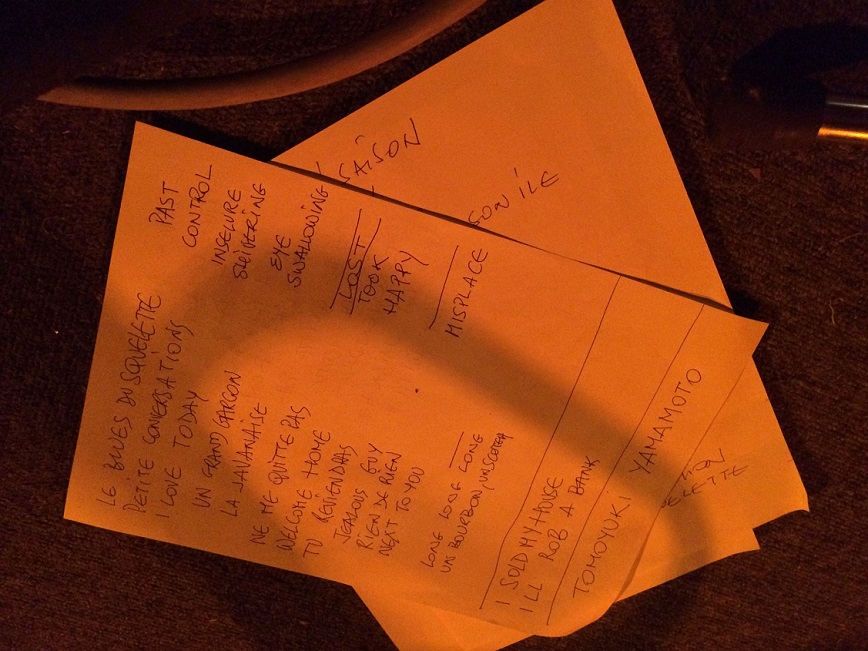 LE BLUES DU SQUELETTE
PETITE CONVERSATIONS
I LOVE TODAY
UN GRAND GARÇON
LA JAVANAISE
NE ME QUITTE PAS
WELCOME HOME
TU REVIENDRAS
JEALOUS GUY
RIEN DE RIEN
NEXT TO YOU
LONG LONG LONG
UN BOURBON, UN SCOTCH
PAST
CONTROL
INSECURE
SHIVERING
EYE
SWALLOWING
LOST
TOOK
HAPPY
MISPLACE
I SOLD MY HOUSE
I LL ROB A BANK
TOMOYUKI YAMAMOTO
SAISON
SON ÎLE
ELETTE